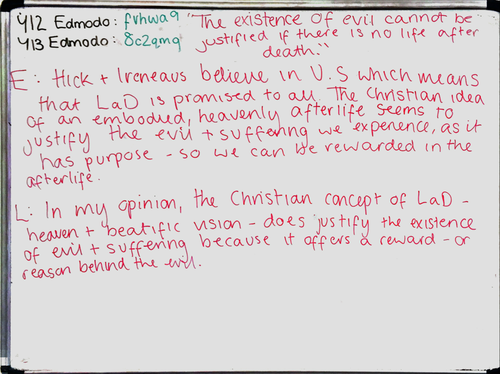 Y12 Edmodo: fvhwa9
Y13 Edmodo: 8c2qmq
"The existence of evil cannot be
justified if there is no life after
death."
E: Hick + Ireneaus believe in U.S which means
that LaD is promised to all. The Christian idea
of an embodied, heavenly afterlife seems to
justify the evil + suffering we experience, as it
has purpose - so we can be rewarded in the
afterlife.
L: In my opinion, the Christian concept of LaD -
heaven + beatific vision - does justify the existence
of evil + suffering because it offers a reward - or
reason behind the evil.